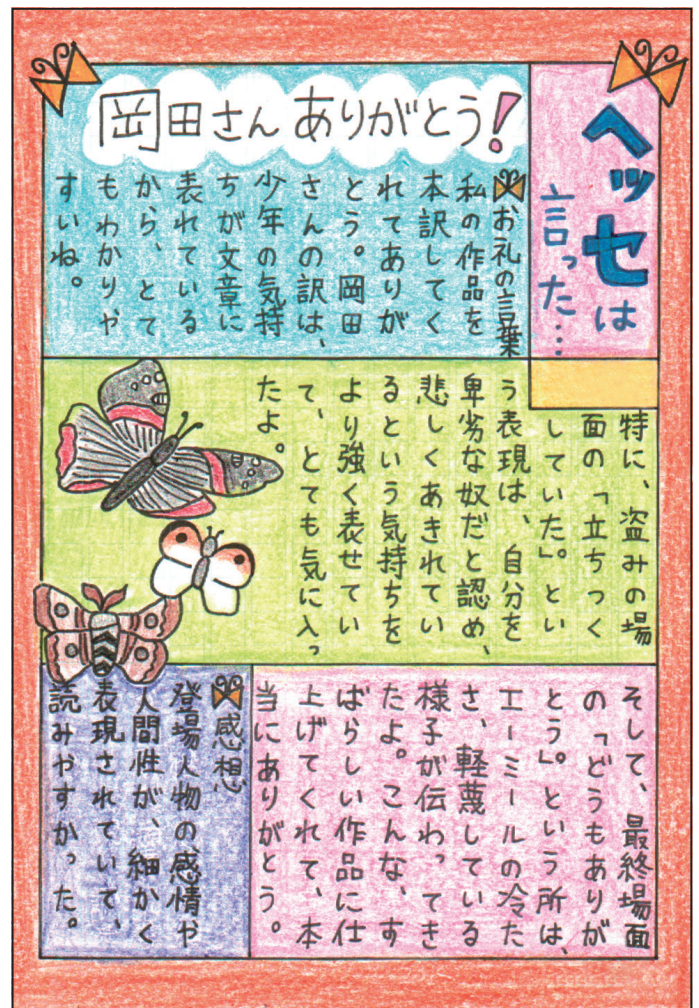 ヘッセは
言った…
岡田さんありがとう!
お礼の言葉
私の作品を
本訳してく
れてありが
とう。岡田
さんの訳は、
少年の気持
ちが文章に
表れている
から、とて
もわかりや
すいね。
特に、盗みの場
面の「立ちつく
していた」。とい
う表現は、自分を
卑劣な奴だと認め、
悲しくあきれてい
るという気持ちを
より強く表せてい
て、とても気に入っ
たよ。
そして、最終場面
の「どうもありが
とう」。という所は、
エーミールの冷た
さ、軽蔑している
様子が伝わってき
たよ。こんな、す
ばらしい作品に仕
上げてくれて、本
当にありがとう。
感想
登場人物の感情や
人間性が、細かく
表現されていて、
読みやすかった。